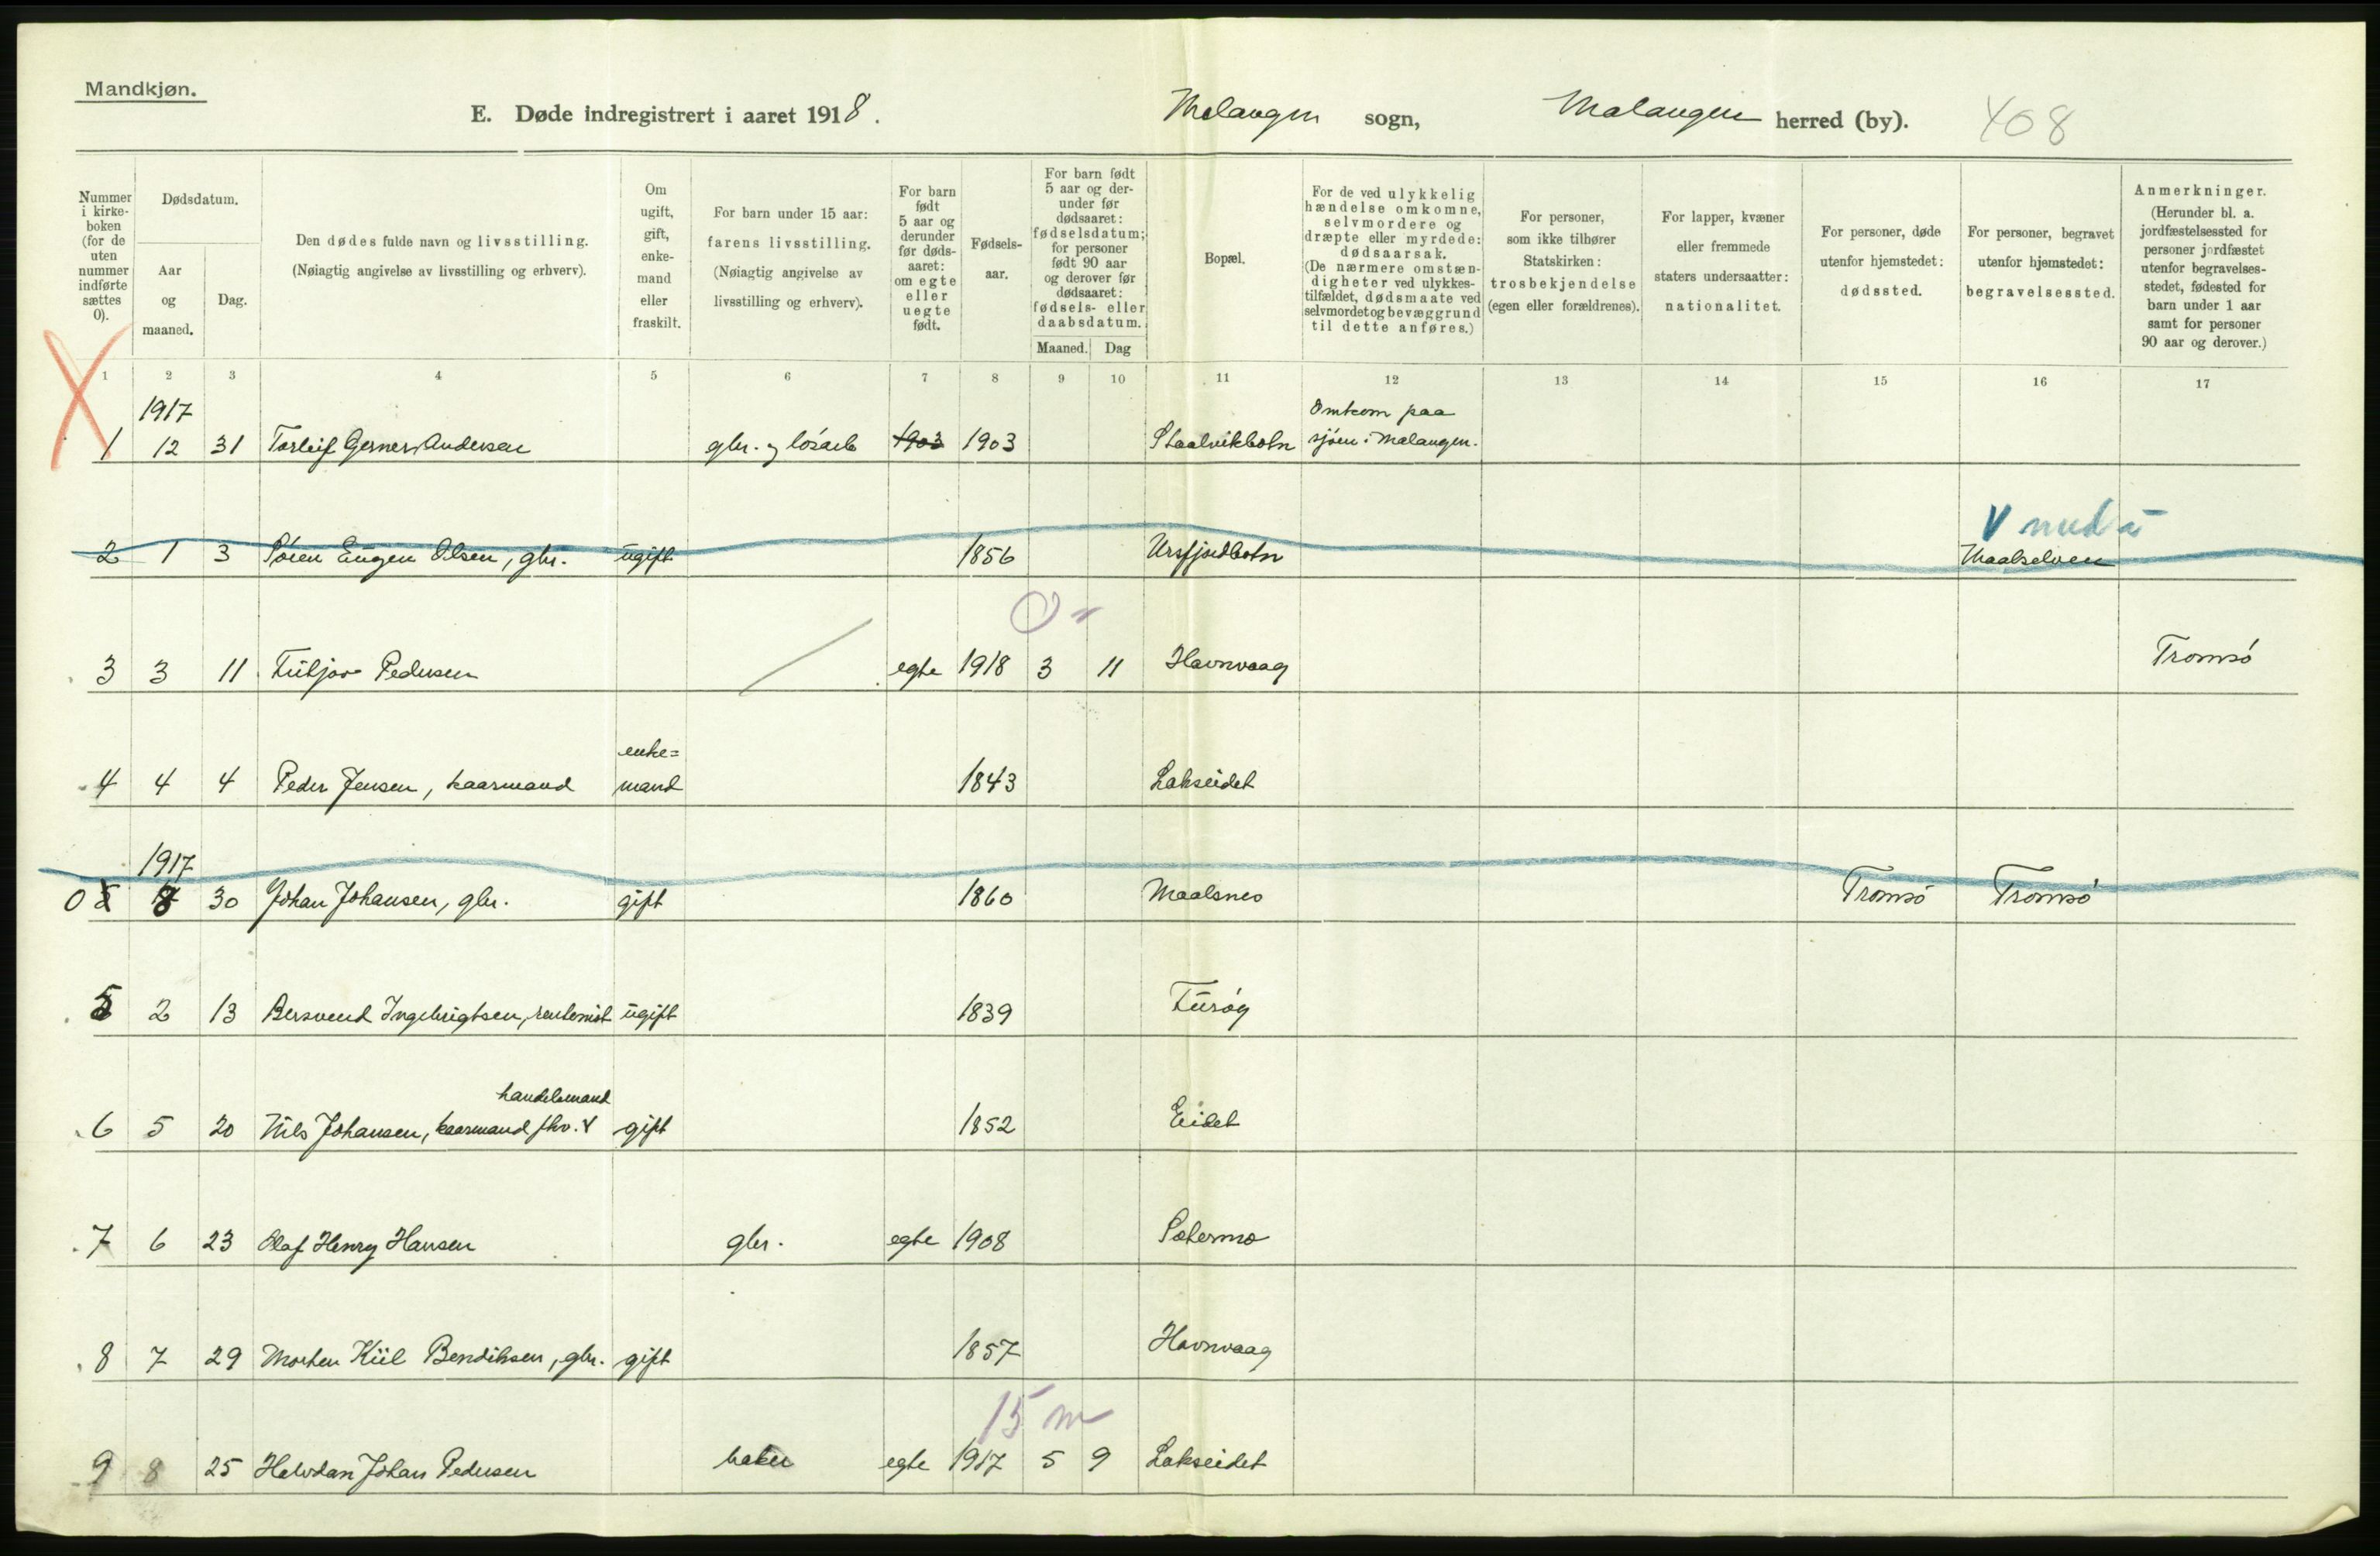 Mandkjøn.
E. Døde indregistrert i aaret 1918. Malangen sogn, Malangen herred (by). 408
Nummer i kirke- boken (for de uten nummer indførte sættes 0).
Dødsdatum.
Aar og maaned.
Dag.
Den dødes fulde navn og livsstilling.
(Nøiagtig angivelse av livsstilling og erhverv).
Om ugift, gift, enke- mand eller fraskilt.
For barn under 15 aar: farens livsstilling.
(Nøiagtig angivelse av livsstilling og erhverv).
For barn født 5 aar og derunder før døds- aaret: om egte eller uegte født.
Fødsels- aar.
For barn født 5 aar og der- under før dødsaaret: fødselsdatum; for personer født 90 aar og derover før dødsaaret: fødsels- eller daabsdatum.
Maaned. Dag
Bopæl.
For de ved ulykkelig hændelse omkomne, selvmordere og dræpte eller myrdede: dødsaarsak.
(De nærmere omstæn- digheter ved ulykkes- tilfældet, dødsmaate ved selvmordet og bevæggrund til dette anføres.)
For personer, som ikke tilhører Statskirken: trosbekjendelse (egen eller forældrenes).
For lapper, kvæner eller fremmede staters undersaatter: nationalitet.
For personer, døde utenfor hjemstedet: dødssted.
For personer, begravet utenfor hjemstedet: begravelsessted.
Anmerkninger.
(Herunder bl. a. jordfæstelsessted for personer jordfæstet utenfor begravelses- stedet, fødested for barn under 1 aar samt for personer 90 aar og derover.)
1 2 3 4 5 6 7 8 9 10 11 12 13 14 15 16 17
1917 Omkom paa
1 12 31 Torleif Gerner Andersen gbr. og løsarb 1903 1903 Staalvikbotn sjøen i Malangen.
V
2 1 3 Søren Eugen Olsen, gbr. ugift 1856 Ursfjordbotn Maalselven
0
3 3 11 Pedersen egte 1918 3 11 Havnvaag Tromsø
enke=
4 4 4 Peder Jensen, kaarmand mand 1843 Lakseidet
1917
0 8 30 Johan Johansen, gbr. gift 1860 Maalsnes Tromsø Tromsø
5 2 13 Bersvend Ingebrigtsen, rentenist ugift 1839
handelsmand
6 5 20 Nils Johansen, kaarmand fhv. gift 1852 Eidet
7 6 23 Olaf Henry Hansen gbr. egte 1908 Sætermo
8 7 29 Morten Kiil Bendiksen, gbr. gift 1857 Havnvaag
15 m
9 8 25 Halvdan Johan Pedersen baker egte 1917 5 9 Lakseidet